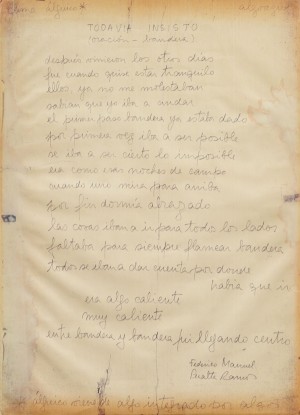 TODAVIA INSISTO
(oración - bandera)
después vinieron los otros días
fue cuando quise estar tranquilo
ellos, ya no me molestaban
sabian que yo iba a andar
el primer paso bandera ya estaba dado
por primera vez iba a ser posible
se iba a ser cierto lo imposible
era como esas noches de campo
cuando uno mira para arriba
por fin dormía abrazado
las cosas iban a ir para todos los lados
faltaba para siempre flamear bandera
todos se iban a dar cuenta por donde
había que ir
era algo caliente
muy caliente
entre bandera y bandera fui llegando centro
Federico Manuel
Peralta Ramos
algo integrado por algo